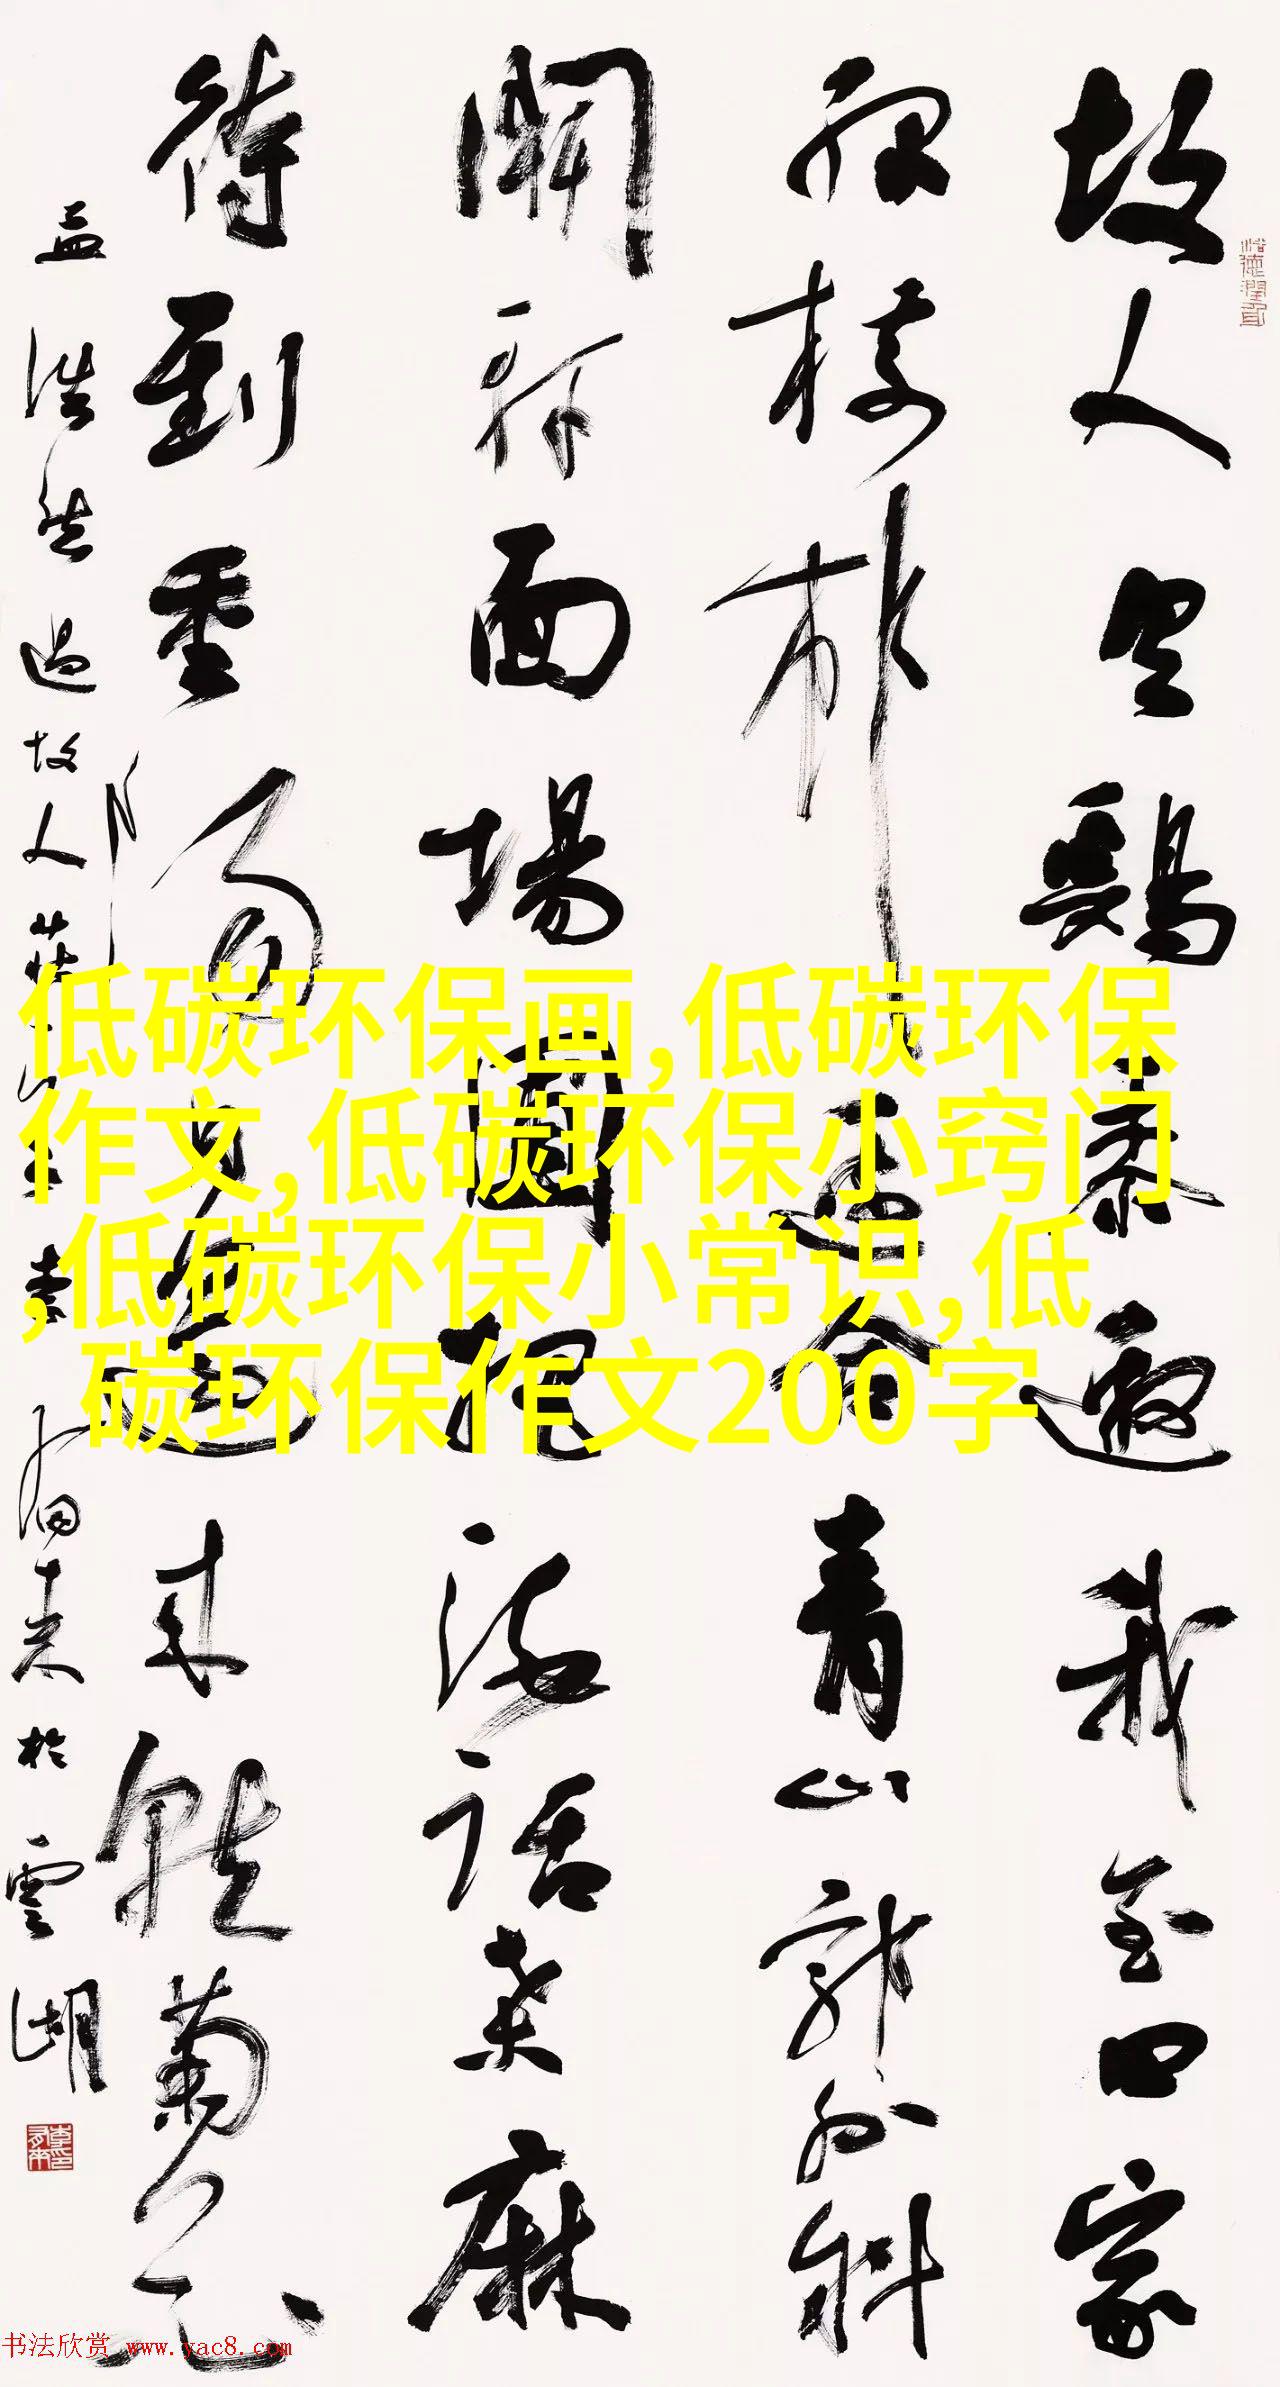 故人具鷄黍邀我至田家
綠樹村邊合青山郭外斜
開軒面場圃把酒話桑麻
待到重陽日還来就菊花
孟浩然過故人莊 李有来於雲湖
低碳环保画,低碳环保
作文,低碳环保小窍门
,低碳环保小常识,低
碳环保作文200字
书法欣赏 www.yac8.com